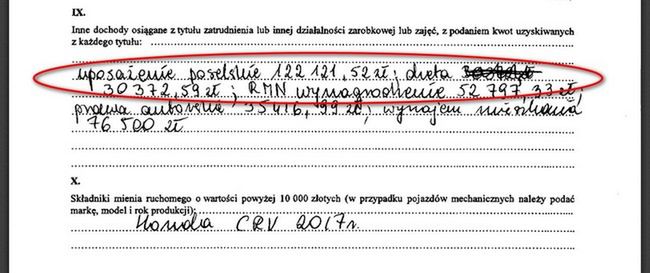 IX.
Inne dochody osiągane z tytułu zatrudnienia lub innej działalności zarobkowej lub zajęć, z podaniem kwot uzyskiwanych
z każdego tytułu:
uposażenie poselskie 122 121,52 zł; dieta
30 372,59 zł; RMN wynagrodzenie 52 797,33 zł
prawa autorskie 35416,99 zł; wynajem mieszkania
76 500 zł
X.
Składniki mienia ruchomego o wartości powyżej 10 000 złotych (w przypadku pojazdów mechanicznych należy podać
markę, model i rok produkcji):
Honda CRV 2017r.